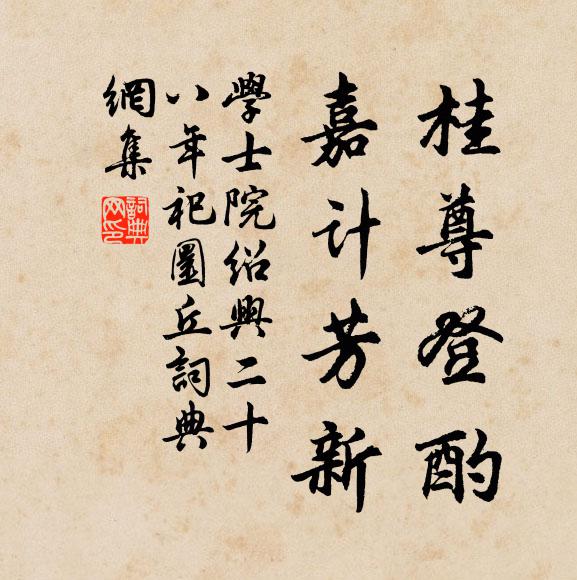 桂尊登酌
嘉计芳新
學士院绍興二十
八年祀圜丘詞典
網集
詞典
网印